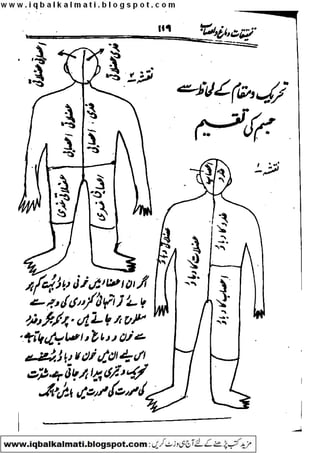 www.iqbalkalmati.blogspot.com
تحقیقات دماغ و اعصاب
۱۱۹
تحریک و مقام کے لحاظ سے
جسم کی تقسیم
نقشہ ۲
غدی عضلاتی
اعصابی عضلاتی
غدی، اعصابی
عضلاتی اعصابی
اعصابی غدی
عضلاتی غدی
نقشہ ۱
غدد
اعصاب
غدد کا دباؤ
عضلات کا دباؤ
اعصاب کا دباؤ
اگر ان اعضاء میں خونی دباؤ بہت کم ہو
جائے تو انتہائی کمزوری کی وجہ سے
مفلوج ہو جاتے ہیں۔ چونکہ جگر و غدد
سے خون و دماغ و اعصاب میں جاتا ہے۔
اس لیے ان میں خون کا دباؤ بڑھنے سے
تحریک و تیزی پیدا ہو جاتی ہے۔ شدت
کی صورت میں بائیں ٹانگ
مزید کتب پڑھنے کے لئے آج ہی وزٹ کریں : www.iqbalkalmati.blogspot.com